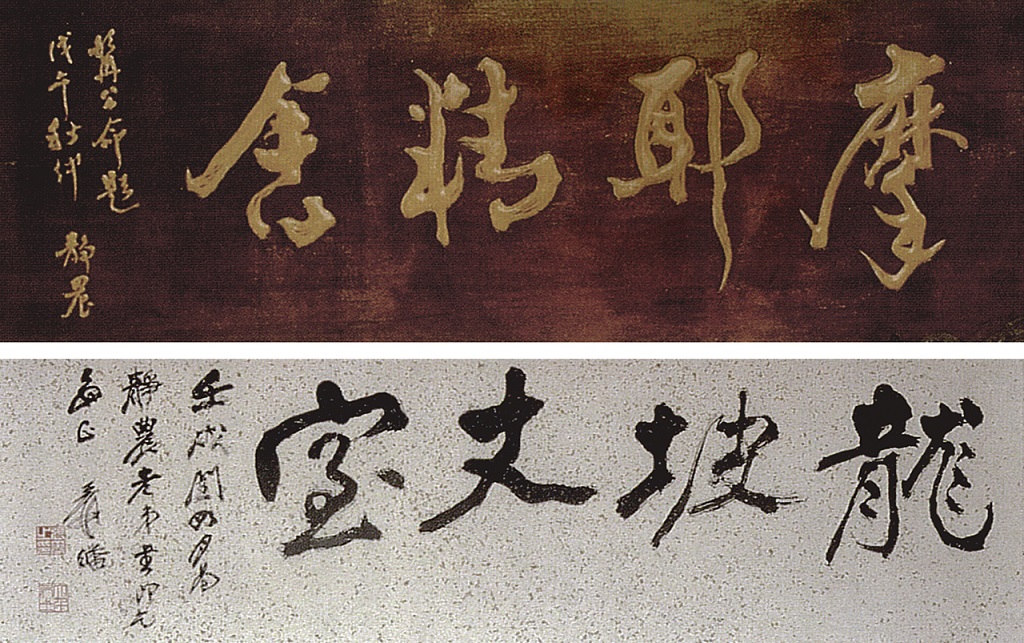 摩耶精舍
髯公命題
戊午秋代
靜農
龍坡丈室
壬戌閏四月為
靜農老弟書即乞
兩正 爰皤